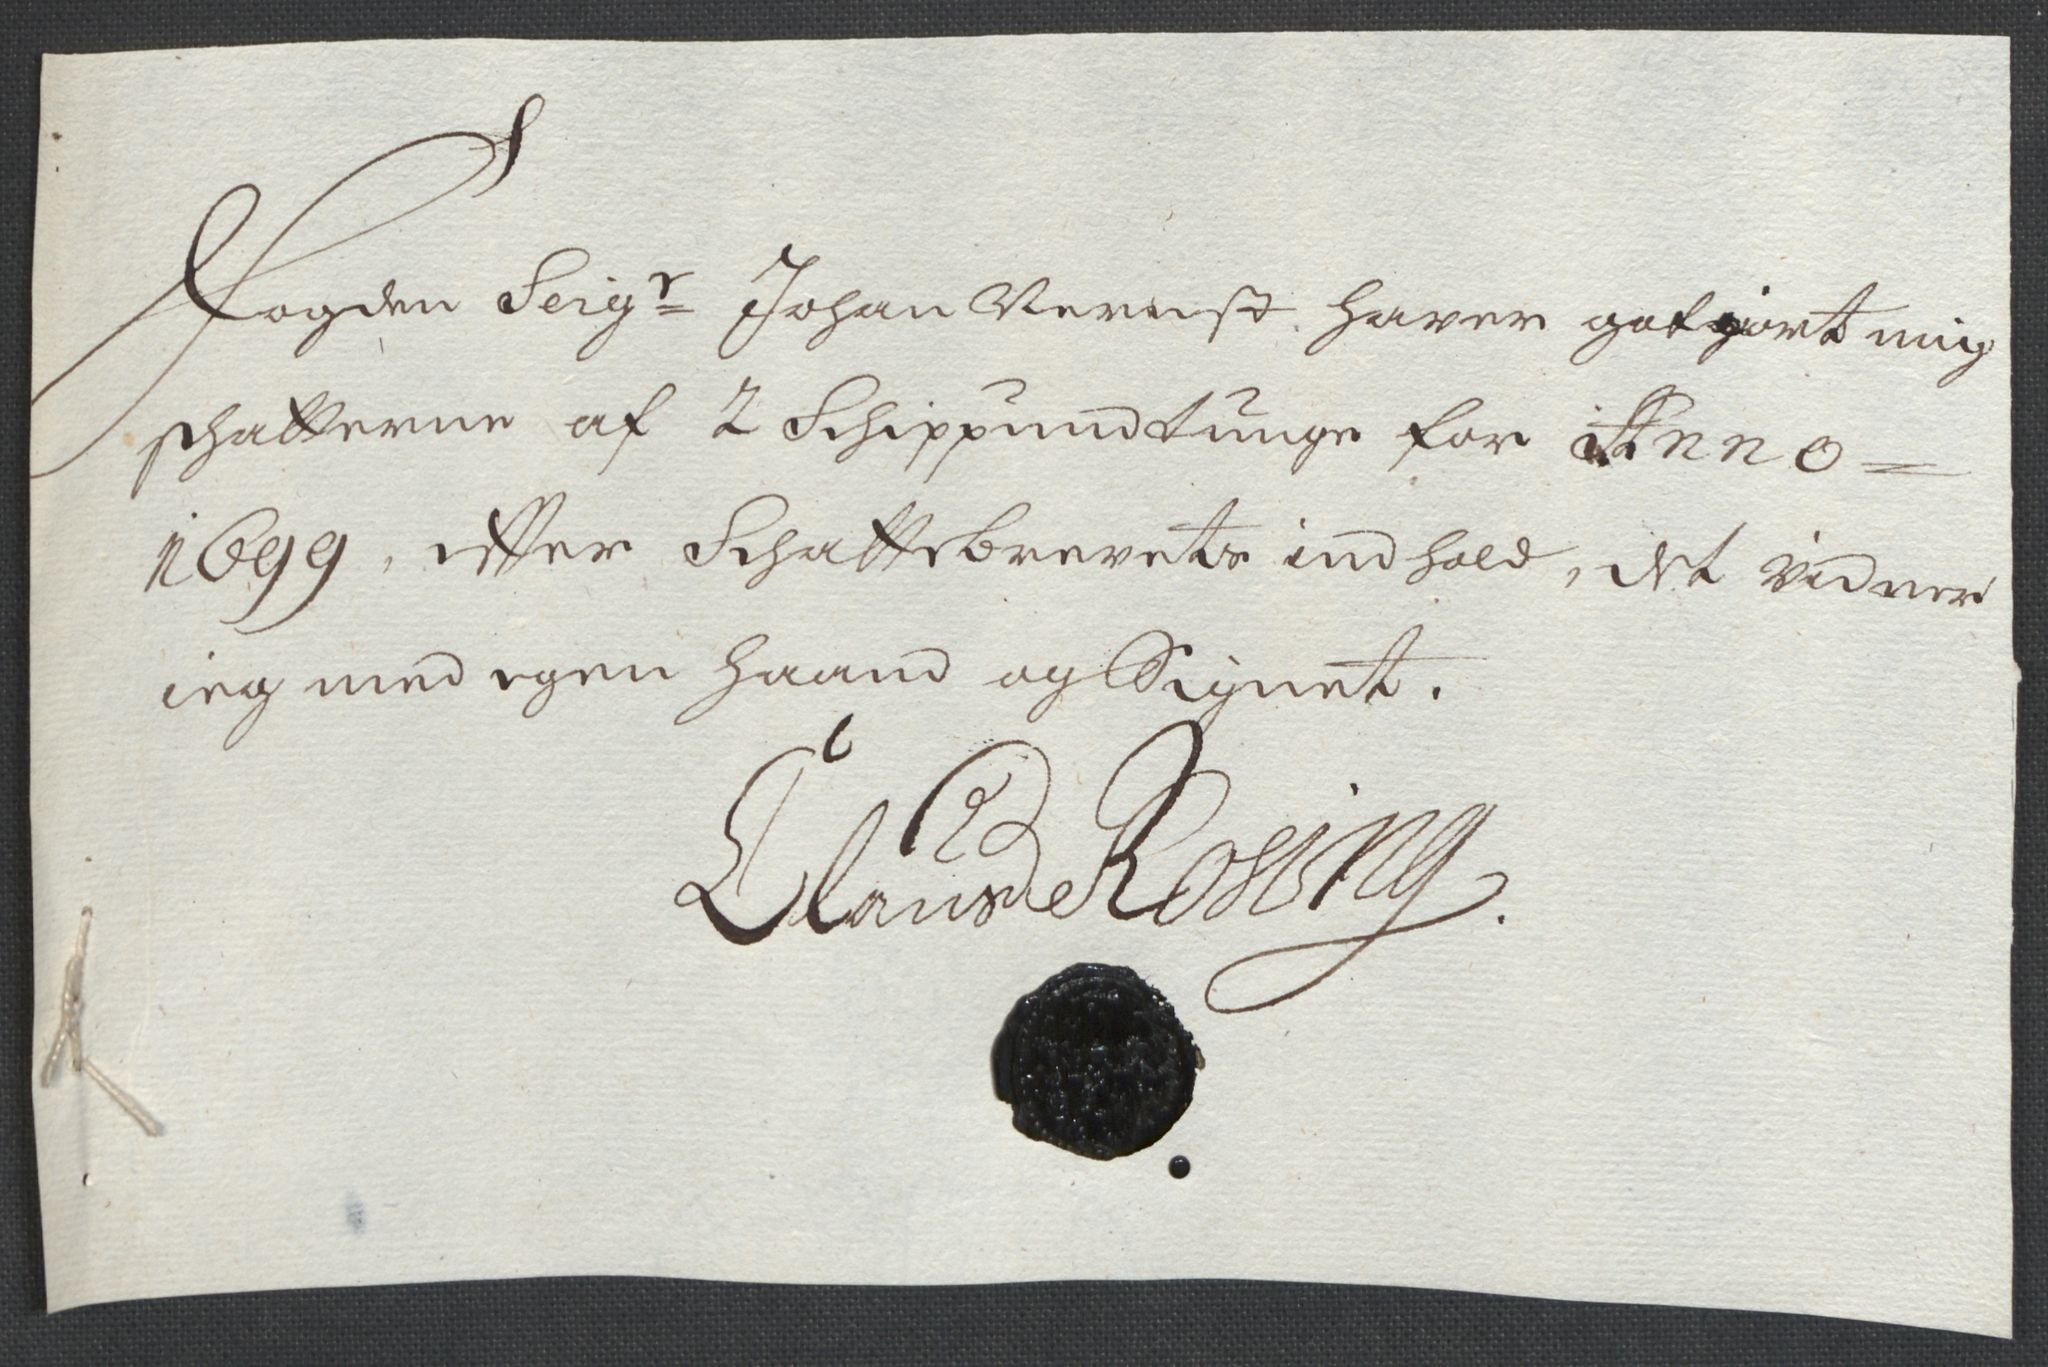 Fogden Seigr Johan Vernst haver godgiort mig
schatterne af 2 Schippund tunge for Anno
1699, effter Schattebrevets indhold, det vidner
ieg med egen haand og Signet.
Claus Rossing.